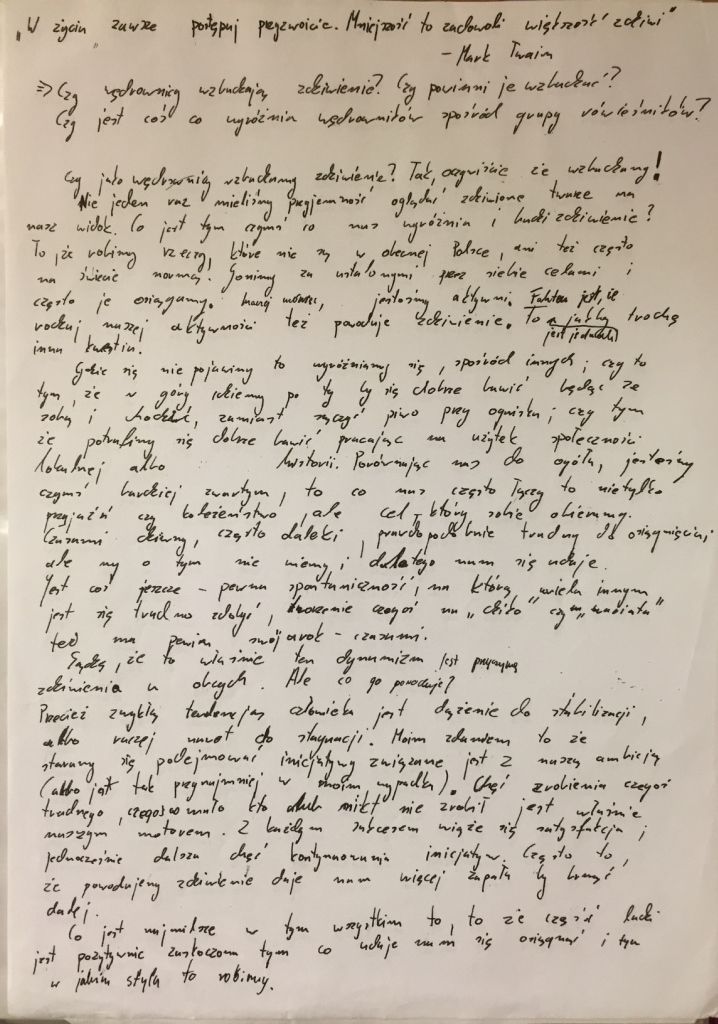 „W życiu zawsze postępuj przyzwoicie. Mniejszość to zadowoli większość zdziwi"
- Mark Twain
=> Czy wędrownicy wzbudzają zdziwienie? Czy powinni je wzbudzać?
Czy jest coś co wyróżnia wędrowników spośród grupy rówieśników?
Czy jako wędrownicy wzbudzamy zdziwienie? Tak, oczywiście że wzbudzamy!
Nie jeden raz mieliśmy przyjemność oglądać zdziwione twarze na
nasz widok. Co jest tym czymś co nas wyróżnia i budzi zdziwienie?
To, że robimy rzeczy, które nie są w obecnej Polsce, ani też często
na świecie normą. Gonimy za ustalonymi przez siebie celami i
często je osiągamy. Inaczej mówiąc, jesteśmy aktywni. Faktem jest, że
rodzaj naszej aktywności też powoduje zdziwienie. To jest jednak trochę
inna kwestia.
Gdzie się nie pojawimy to wyróżniamy się, spośród innych; czy to
tym, że w góry idziemy po to by się dobrze bawić będąc ze
sobą i chodzić, zamiast sączyć piwo przy ognisku; czy tym
że potrafimy się dobrze bawić pracując na użytek społeczności
lokalnej albo historii. Porównując nas do ogółu, jesteśmy
czymś bardziej zwartym, to co nas często łączy to nietylko
przyjaźń czy koleżeństwo, ale cel, który sobie obieramy.
Czasami dziwny, często daleki, prawdopodobnie trudny do osiągnięcia,
ale my o tym nie wiemy i dlatego nam się udaje.
Jest coś jeszcze - pewna spontaniczność, na którą wielu innym
jest się trudno zdobyć, tworzenie czegoś na „dziko" czy „wariata"
też ma pewien swój urok - czasami.
Sądzę, że to właśnie ten dynamizm jest przyczyną
zdziwienia u obcych. Ale co go powoduje?
Przecież zwykłą tendencją człowieka jest dążenie do stabilizacji,
albo raczej nawet do stagnacji. Moim zdaniem to że
staramy się podejmować inicjatywy związane jest z naszą ambicją
(albo jest tak przynajmniej w moim wypadku). Chęć zrobienia czegoś
trudnego, czegoś co mało kto albo nikt nie zrobił jest właśnie
naszym motorem. Z każdym sukcesem wiąże się satysfakcja i
jednocześnie dalsza chęć kontynuowania inicjatyw. Często to,
że powodujemy zdziwienie daje nam więcej zapału by brnąć
dalej.
Co jest najmilsze w tym wszystkim to, to że część ludzi
jest pozytywnie zaskoczona tym co udaje nam się osiągnąć i tym
w jakim stylu to robimy.